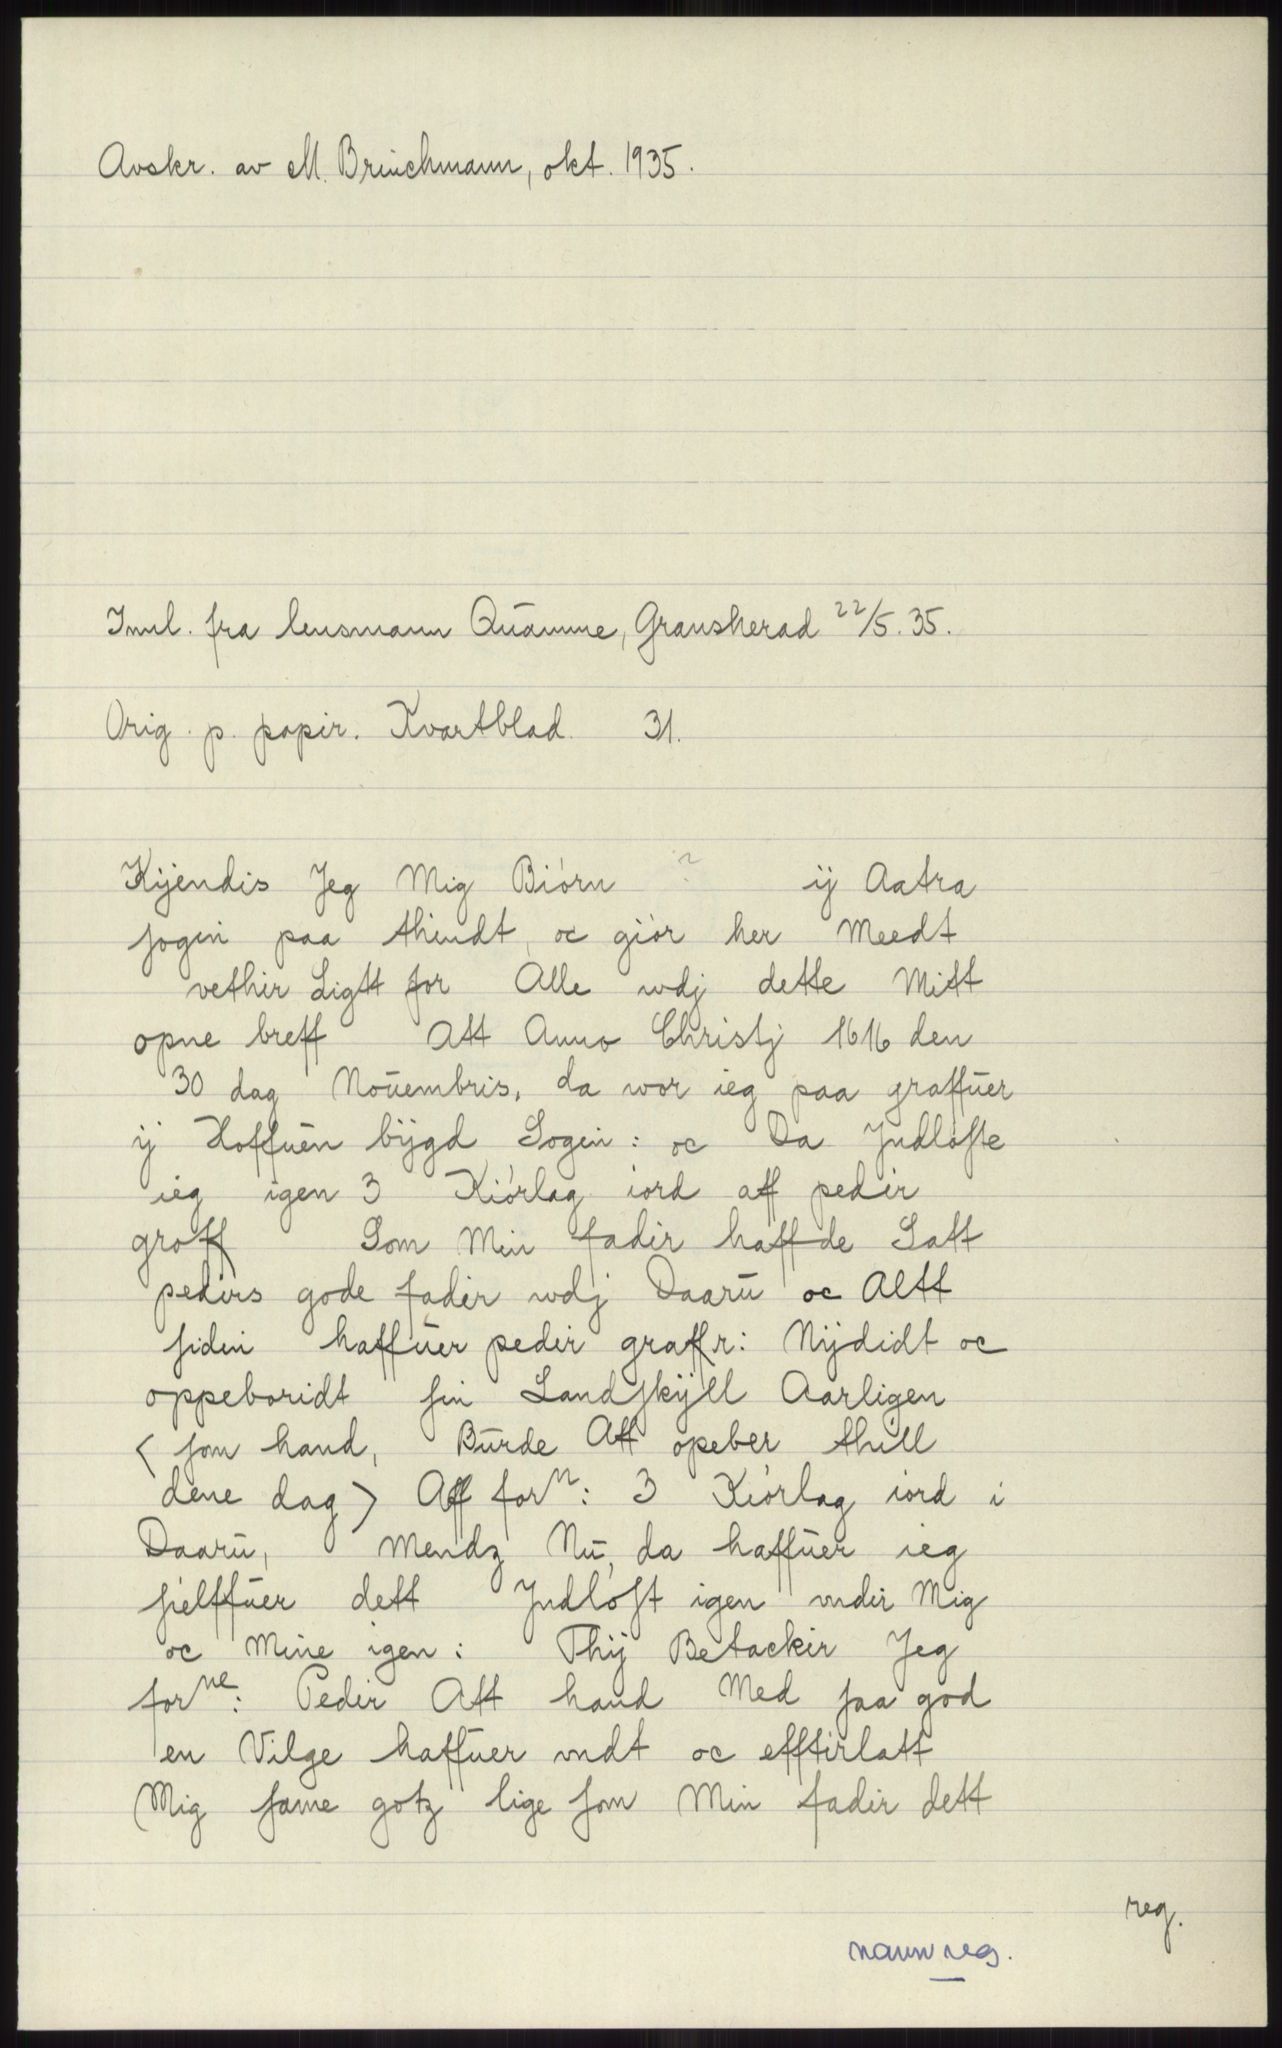 Avskr. av M. Brinchmann, okt. 1935.
Innl. fra lensmann Quamme, Gransherad 22/5. 35.
Orig. p. papir. Kvartblad. 31.
Kijendis Jeg Mig Biórn ? ij Aatra
sogin paa thindt, oc giór her Meedt
vethir Ligtt for Alle wdj dette Mitt
opne breff Att Anno Christj 1616 den
30 dag Nouembris, da wor ieg paa graffuer
ij Hoffuen bijgd Sogin: oc Da Jndlóste
ieg igen 3 Kiórlag iord aff pedir
groff Som Min fadir haffde Satt
pedirs gode fadir wdj Daaru oc Altt
siden haffuer pedir graffr: Nijdidt oc
oppeboridt sin Landskijll Aarligen
< som hand, Burde Att opeber thill
dene dag > Aff forn: 3 Kiórlag iord i
Daaru, Mendz Nu, da haffuer ieg
sielffuer dett Jndlóst igen vndir Mig
oc Mine igen: Thij Betackir Jeg
forne: Pedir Att hand Med saa god
en Vilge haffuer vndt oc efftirlatt
Mig same gotz lige som Min fadir dett
reg.
navnreg.